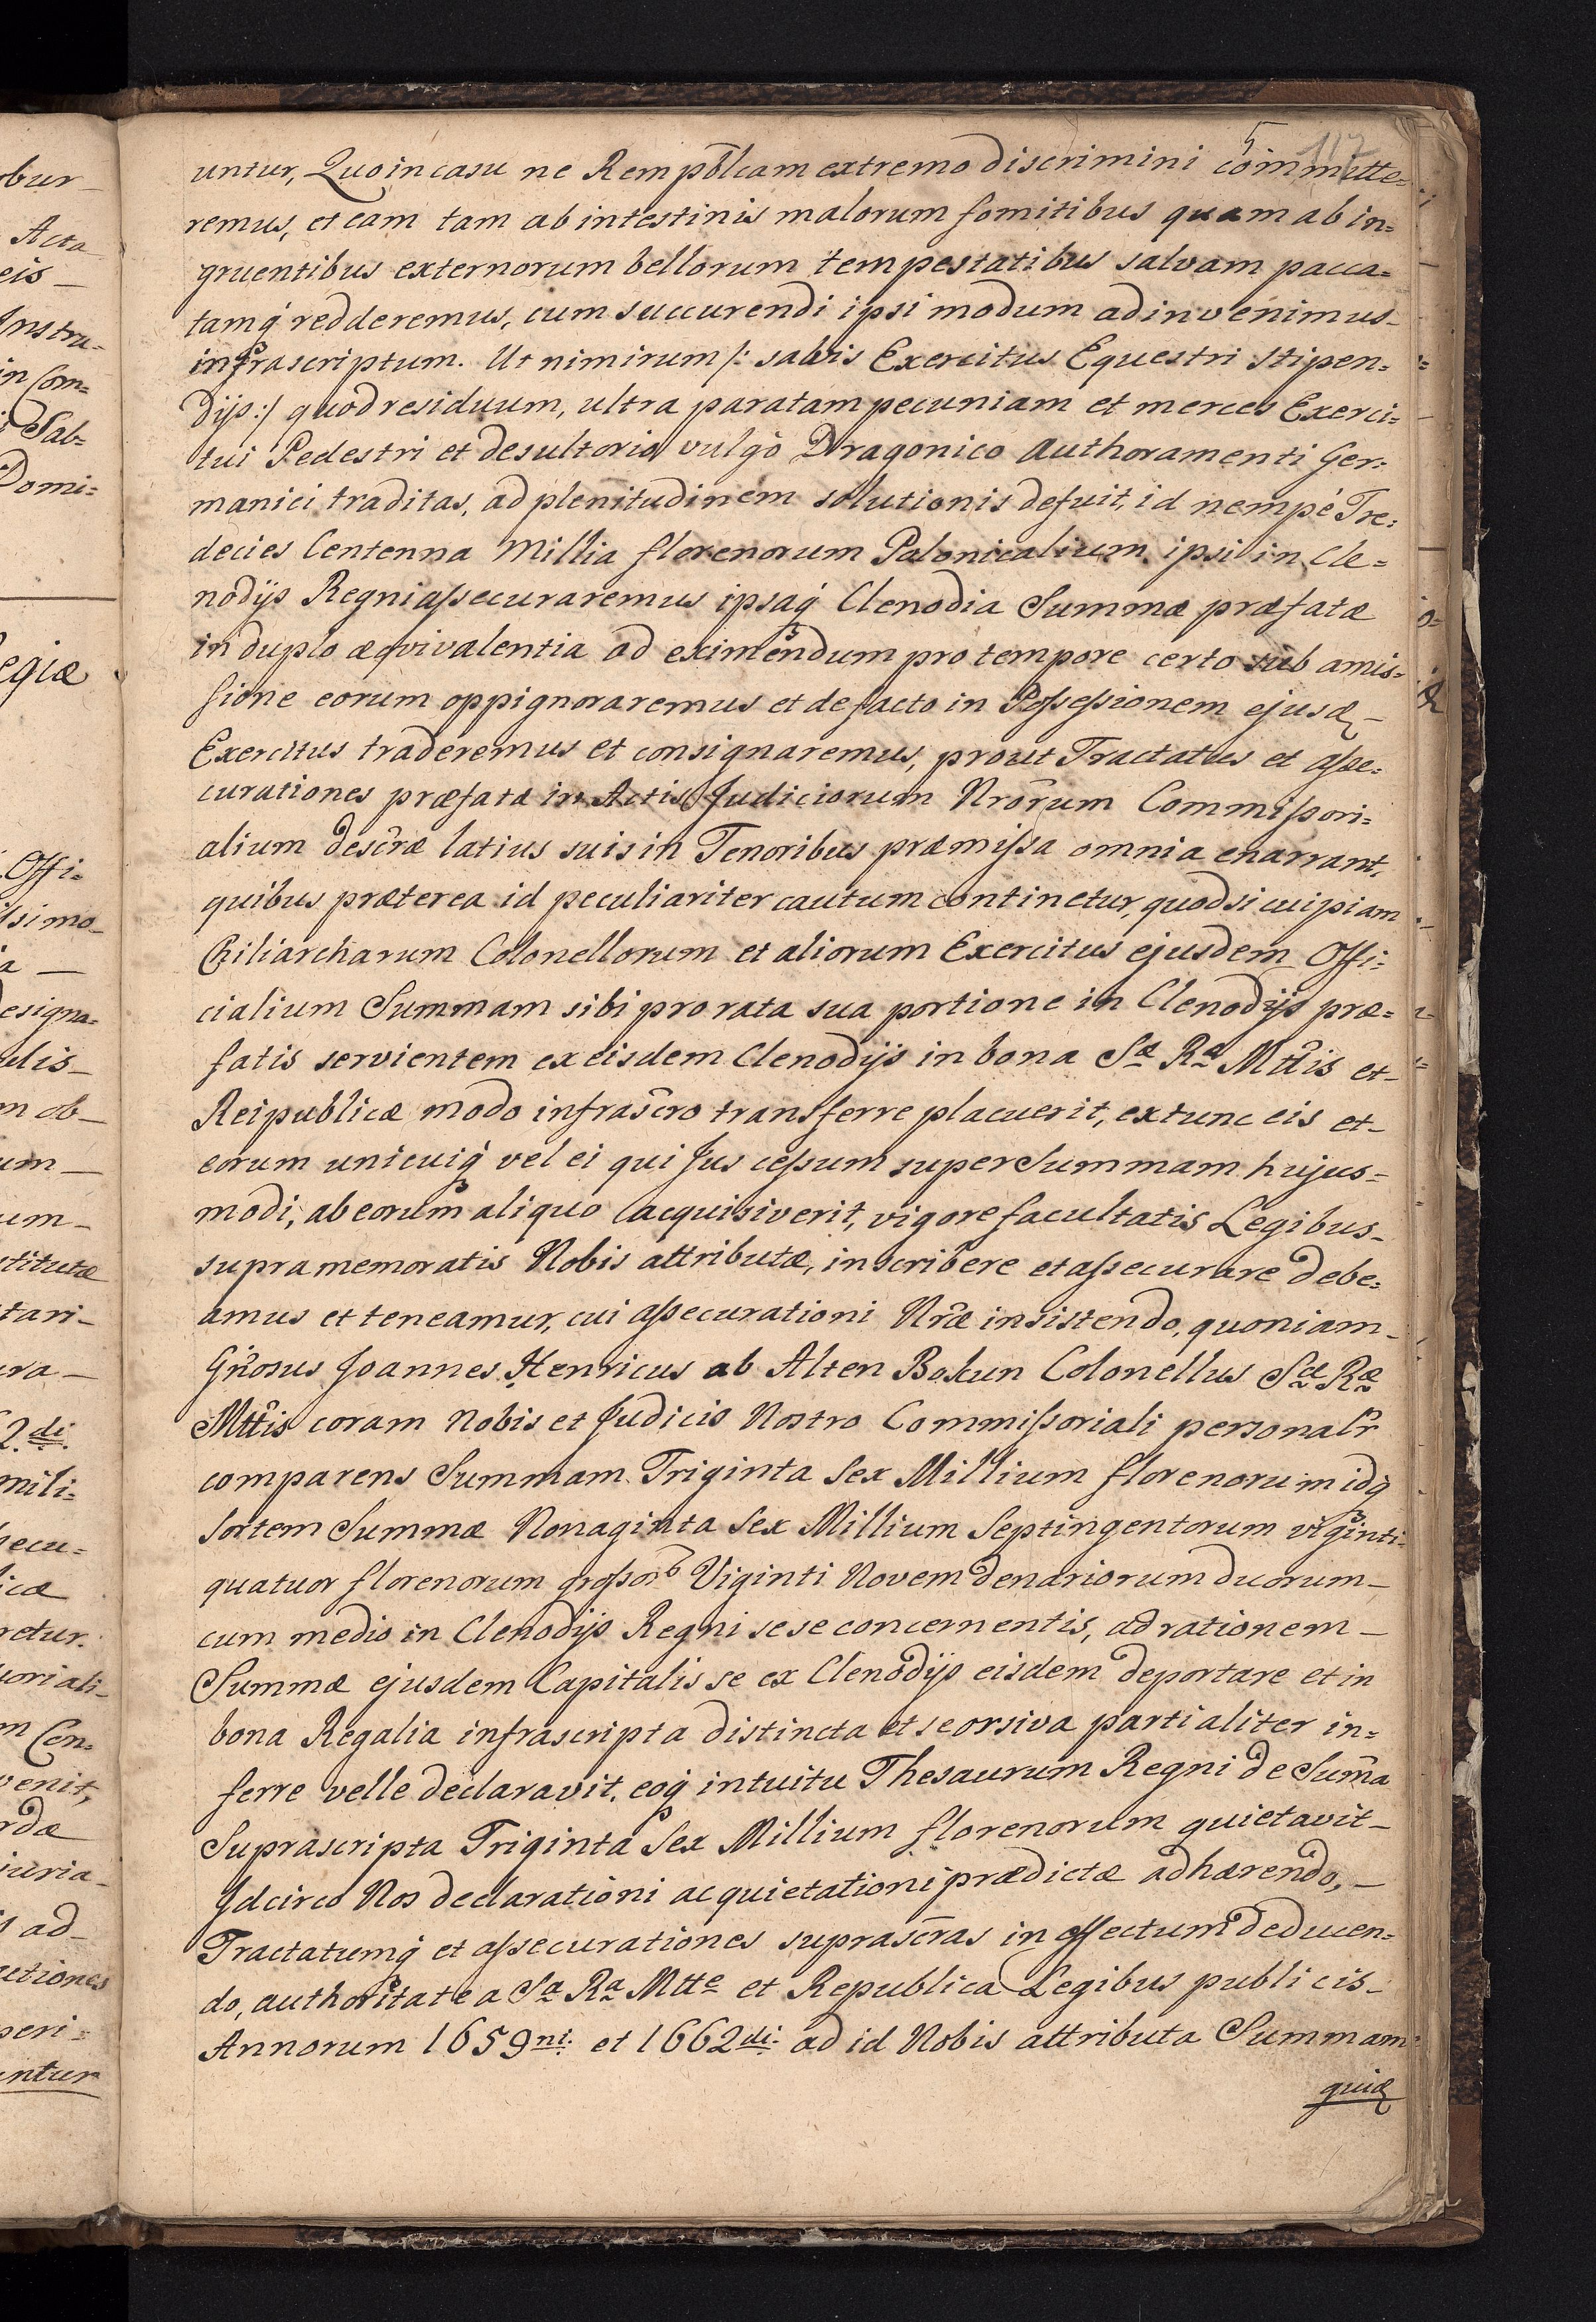 5 117
untur, Quo in casu ne Rempõlcam extremo discrimini committe=
remus, et eam tam ab intestinis malorum fomitibus quam ab in=
gruentibus externorum bellorum tempestatibus salvam pacca=
tamq́ redderemus, cum succurendi ipsi modum adinvenimus_
infrascriptum. Ut nimirum /: salvis Exercitus Equestri stipen=
dijs:/ quod residuum, ultra paratam pecuniam et merces Exerci=
tui Pedestri et desultorio vulgò Dragonico Authoramenti Ger=
manici traditas, ad plenitudinem solutionis defuit, id nempè Tre=
decies Centenna Millia florenorum Polonicalium ipsi in Cle=
nodijs Regni assecuraremus ipsaq́ Clenodia Summæ præfatæ
in duplo æqvivalentia ad eximendum pro tempore certo sub amis=
sione eorum oppignoraremus et de facto in Possessionem ejusd_
Exercitus traderemus et consignaremus, prout Tractatus et asse=
curationes præfatæ in Actis Judiciorum Nrõrum Commissori=
alium descr̃æ latius suis in Tenoribus præmissa omnia enarrant,
quibus præterea id peculiariter cautum continetur, quod si cuipiam
Chiliarcharum Colonellorum et aliorum Exercitus ejusdem Offi=
cialium Summam sibi pro rata sua portione in Clenodijs præ=
fatis servientem ex eisdem Clenodijs in bona Sæ Ræ Mttis et_
Reipublicæ modo infrascr̃o transferre placuerit, extunc eis et_
eorum unicuiq́ vel ei qui Jus cessum super Summam hujus=
modi, ab eorum aliquo acquisiverit, vigore facultatis Legibus_
supramemoratis Nobis attributæ, inscribere et assecurare debe=
amus et teneamur, cui assecurationi Nr̃æ insistendo, quoniam_
Gñosus Joannes Henricus ab Alten Bokun Colonellus Sæ Ræ
Mttis coram Nobis et Judicio Nostro Commissoriali personalr̃
comparens Summam Triginta Sex Millium florenorum idq́
sortem Summæ Nonaginta Sex Millium Septingentorum viginti
quatuor florenorum grossor̃ Viginti Novem denariorum duorum_
cum medio in Clenodijs Regni sese concernentis, ad rationem_
Summæ ejusdem Capitalis se ex Clenodijs eisdem deportare et in
bona Regalia infrascripta distincta et seorsiva partialiter in=
ferre velle declaravit, eoq́ intuitu Thesaurum Regni de Sum̃a
Suprascripta Triginta Sex Millium florenorum quietavit_
Idcirco Nos declarationi ac quietationi prædictæ adhærendo,_
Tractatumq́ et assecurationes suprascr̃as in effectum deducen=
do, authoritate a Sa Ra Mtte et Republica Legibus publicis_
Annorum 1659ni. et 1662di. ad id Nobis attributa Summam
quid